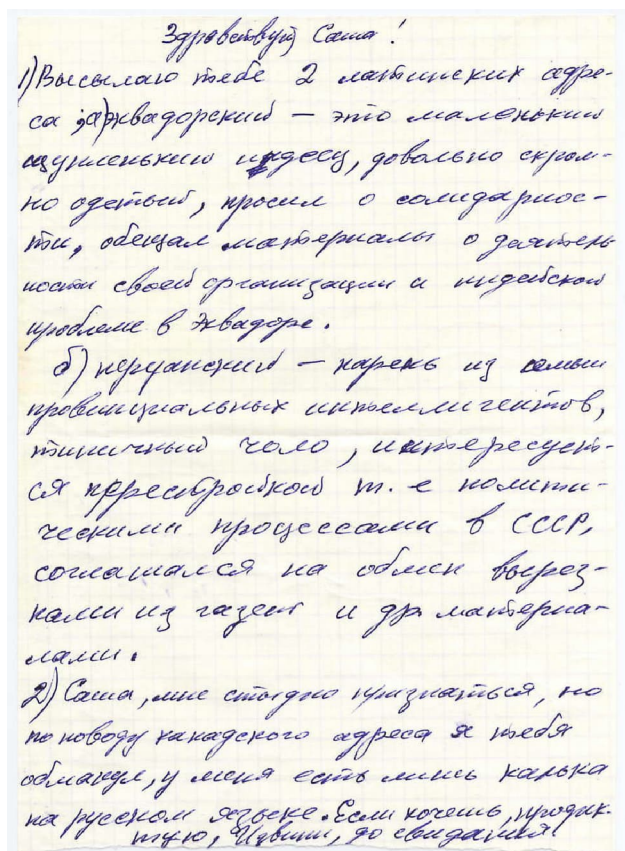 Здравствуй Саша!
1) Высылаю тебе 2 латинских адре-
са ; а) эквадорский – это маленький
щупленький индеец, довольно скром-
но одетый, просил о солидарнос-
ти, обещал материалы о деятель
ности своей организации и индейской
проблеме в Эквадоре.
б) перуанский – парень из семьи
провинциальных интеллигентов,
типичный чоло, интересует-
ся перестройкой т. е полити-
ческими процессами в СССР,
соглашался на обмен вырез-
ками из газет и др материа-
лами.
2) Саша, мне стыдно признаться, но
по поводу канадского адреса я тебя
обманул, у меня есть лишь калька
на русском языке. Если хочешь, продик-
тую, Извини, до свидания!